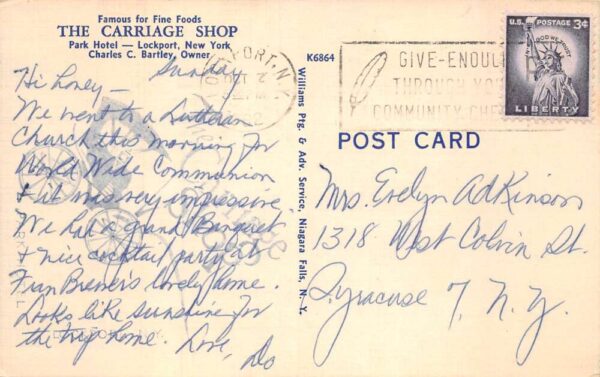 Famous for Fine Foods
THE CARRIAGE SHOP
Park Hotel — Lockport, New York
Charles C. Bartley, Owner
Sunday
Hi honey —
We went to a Lutheran
Church this morning for
World Wide Communion
& it was very impressive
We had a grand Banquet
& nice cocktail party at
Fran Brewer's lovely home.
Looks like sunshine for
the trip home. Love, Do
K6864
Williams Ptg. & Adv. Service, Niagara Falls, N. Y.
GIVE-ENOU
THROUGH YOU
COMMUNITY CHE
U.S. POSTAGE 3¢
IN GOD WE TRUST
LIBERTY
POST CARD
Mrs. Evelyn Adkinson
1318 West Colvin St.
Syracuse 7, N.Y.